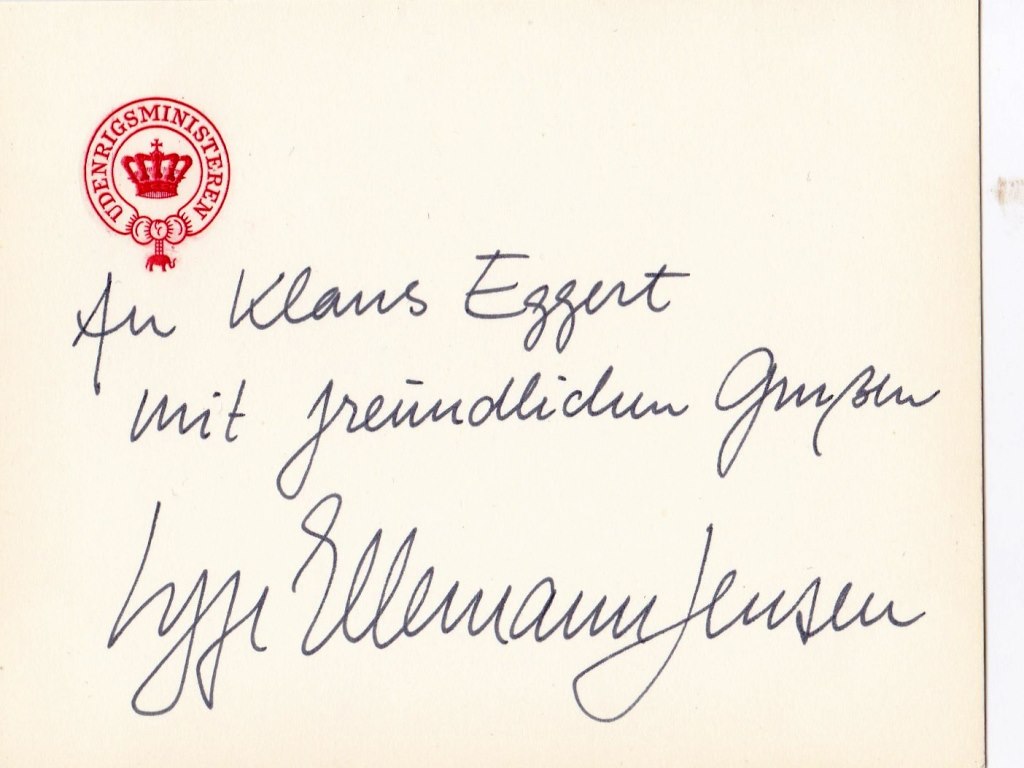 UDENRIGSMINISTEREN
An Klaus Eggert
mit freundlichen Grußen
Uffe Ellemann Jensen